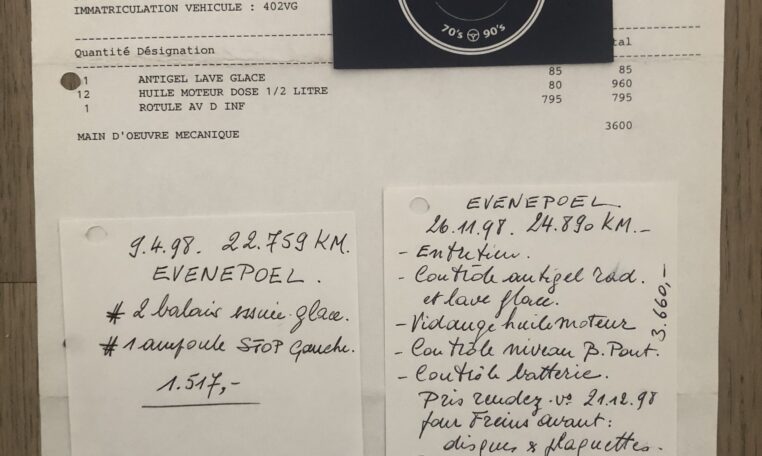 IMMATRICULATION VEHICULE : 402VG
70's 90's
Quantité Désignation tal
1 ANTIGEL LAVE GLACE 85 85
12 HUILE MOTEUR DOSE 1/2 LITRE 80 960
1 ROTULE AV D INF 795 795
MAIN D'OEUVRE MECANIQUE 3600
9.4.98. 22.759 KM.
EVENEPOEL.
# 2 balais essuie-glace.
# 1 ampoule STOP Gauche.
1.517,-
EVENEPOEL
26.11.98. 24.890 KM.-
- Entretien.
- Contrôle antigel rad.
et lave glace.
- Vidange huile moteur
- Contrôle niveau B. Pont.
- Contrôle batterie.
3.660,-
Pris rendez-vs 21.12.98
pour Freins avant:
disques & plaquettes.